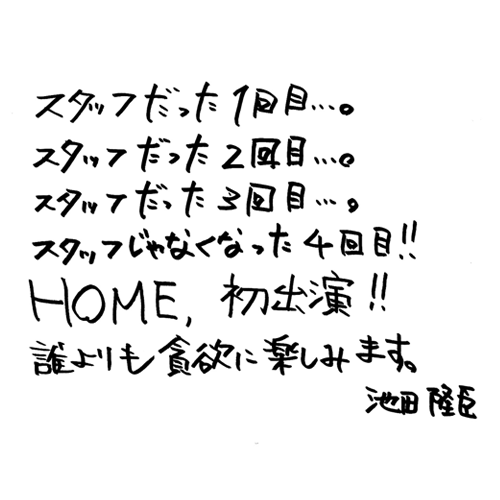 スタッフだった1回目…。
スタッフだった2回目…。
スタッフだった3回目…。
スタッフじゃなくなった4回目!!
HOME, 初出演!!
誰よりも貪欲に楽しみます。
池田隆臣